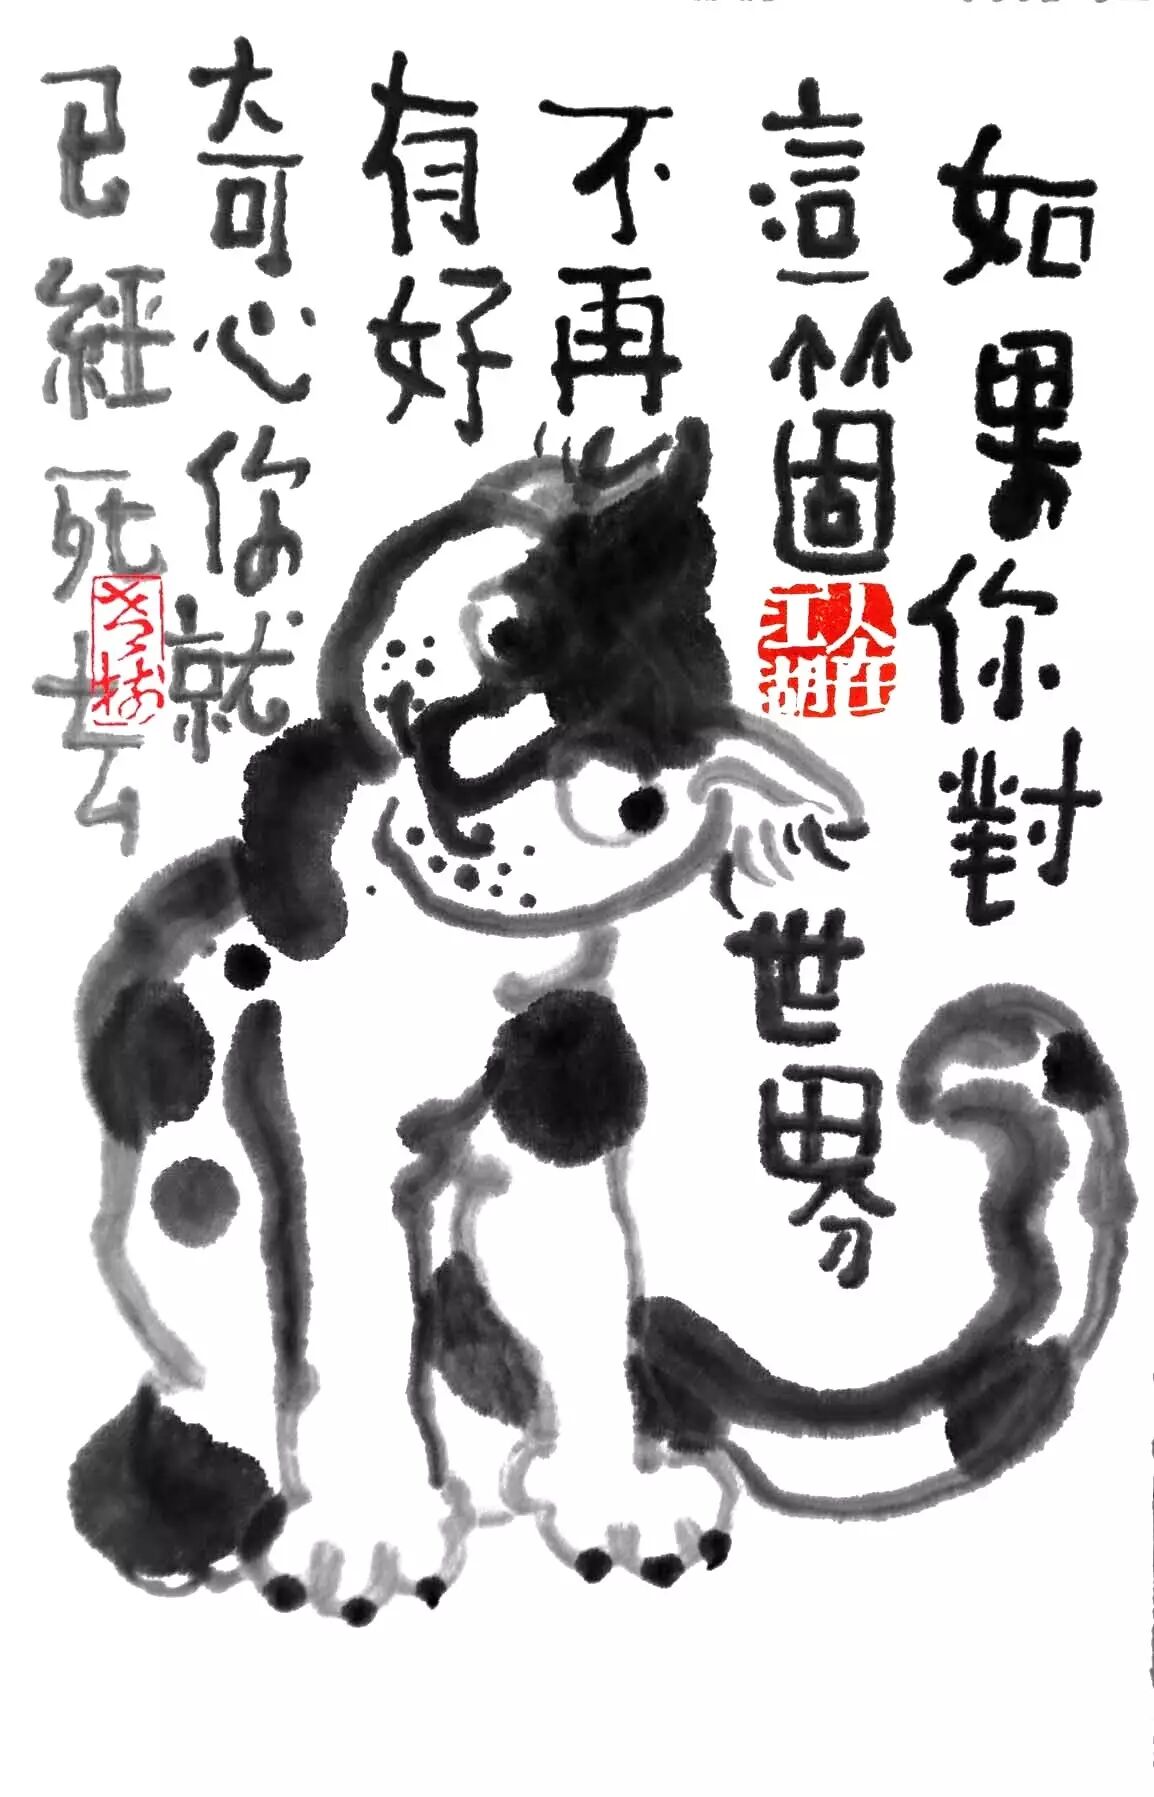 如果你對
這箇世界
不再
有好
奇心你就
已經死去
人在
江湖
老树